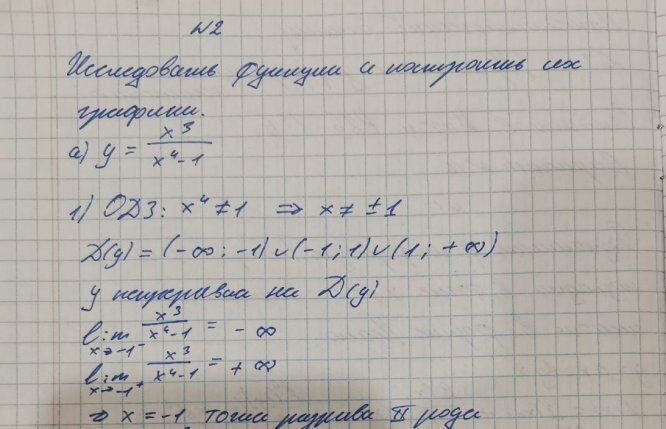 №2
Исследовать функции и построить их
графики.
а) y = x³/(x⁴-1)
1) ОДЗ: x⁴ ≠ 1 ⇒ x ≠ ±1
D(y) = (-∞; -1) ∪ (-1; 1) ∪ (1; +∞)
y непрерывна на D(y)
lim x→-1⁻ x³/(x⁴-1) = -∞
lim x→-1⁺ x³/(x⁴-1) = +∞
⇒ x = -1 точка разрыва II рода